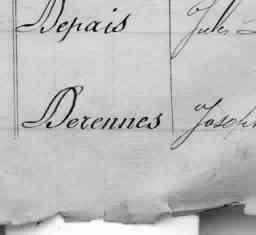 Depais Jules
Derennes Joseph